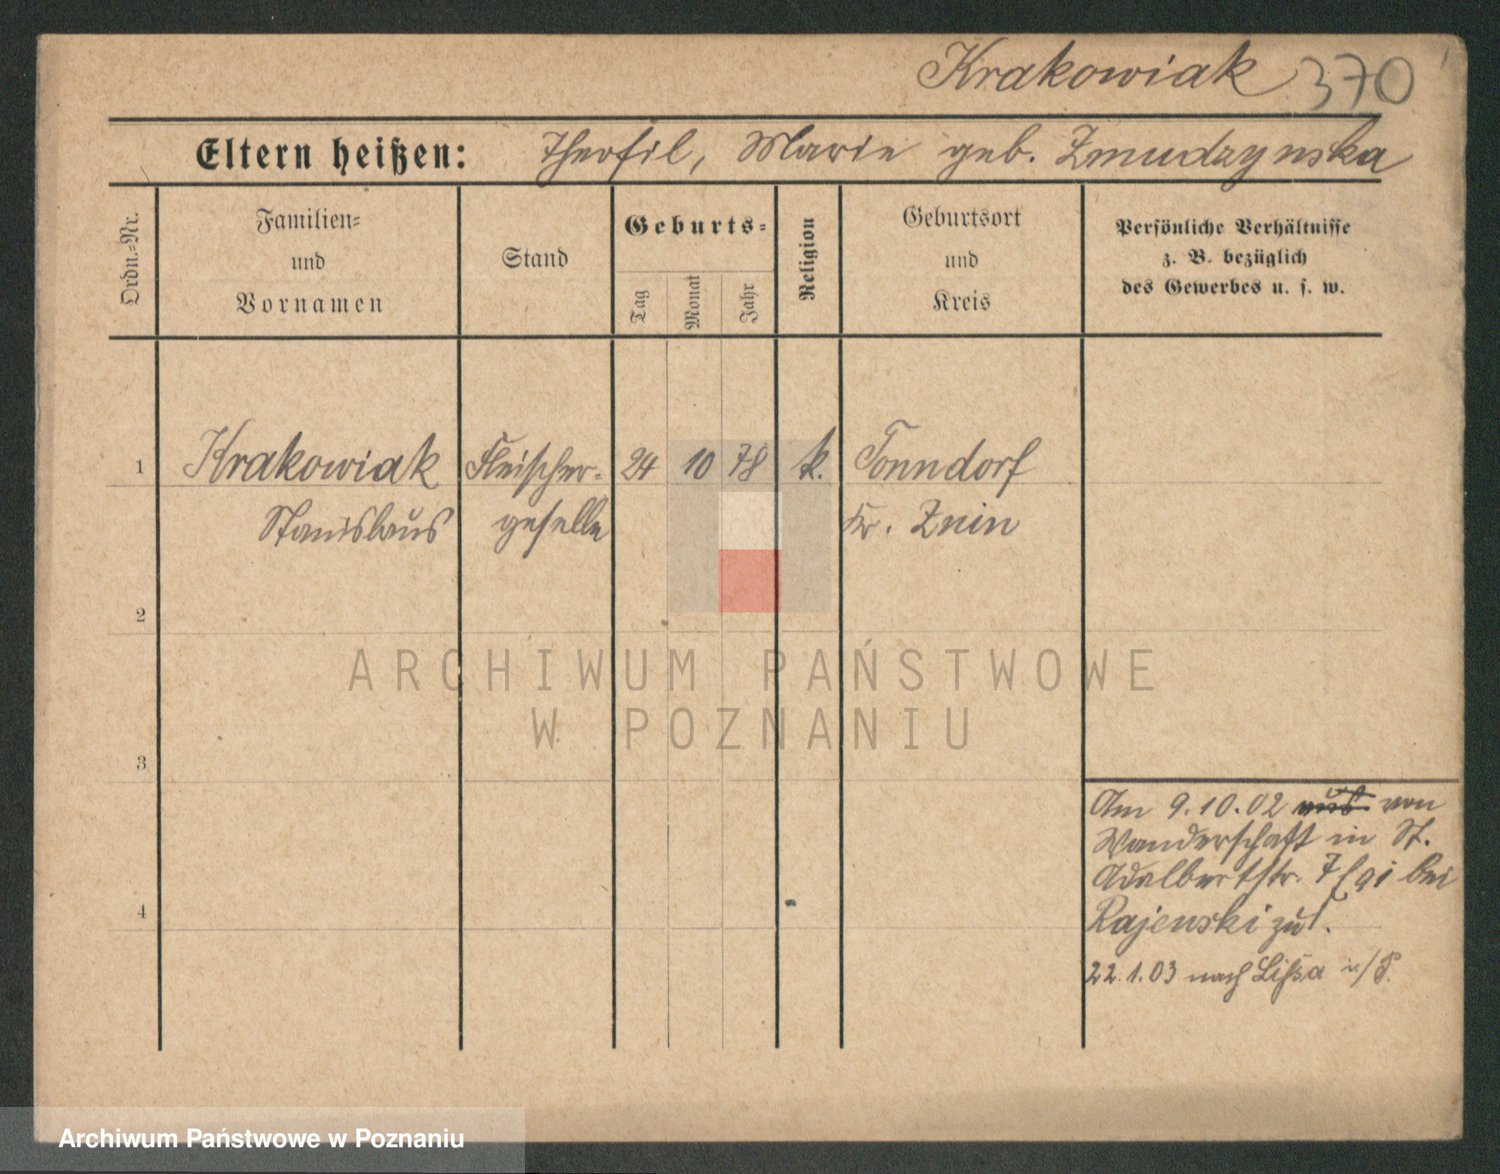 Krakowiak 370
Eltern heißen: Theofil, Marie geb. Zmudzynska
Ordn.-Nr.
Familien-
und
Vornamen
Stand
Geburts-
Tag
Monat
Jahr
Religion
Geburtsort
und
Kreis
Persönliche Verhältnisse
z. B. bezüglich
des Gewerbes u. s. w.
1 Krakowiak Fleischer- 24 10 78 k. Tonndorf
Stanislaus geselle Kr. Znin
2
ARCHIWUM PAŃSTWOWE
W POZNANIU
3
Am 9.10.02 aus von
Wanderschaft in St.
Adalbertstr. 7 bei
4
Rajewski zu
22.1.03 nach Lissa i/P.
Archiwum Państwowe w Poznaniu